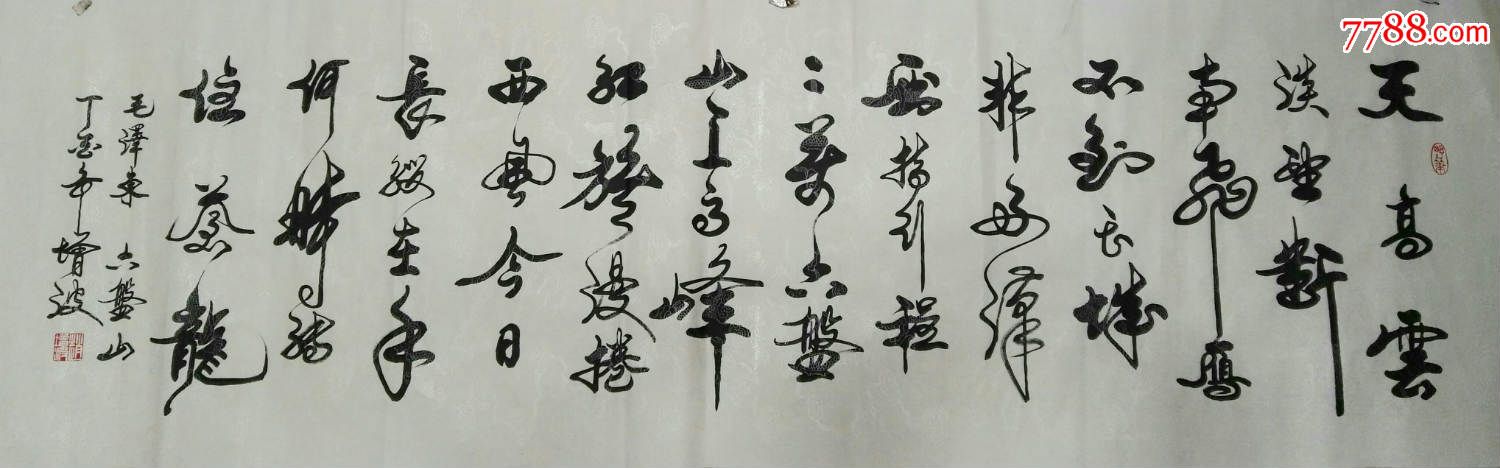 7788.com
天高雲
淡望斷
南飛雁
不到長城
非好漢
屈指行程
二萬六盤
山上高峰
紅旗漫捲
西風今日
長纓在手
何時縛
住蒼龍
毛澤東 六盤山
丁酉年增波